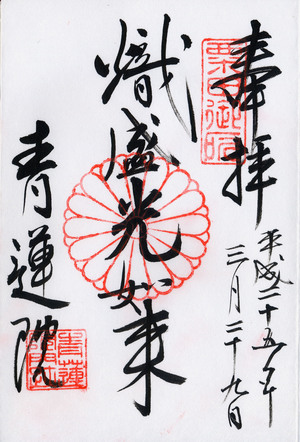 奉拝
平成二十五年
三月二十九日
熾盛光如来
青蓮院
粟田御所